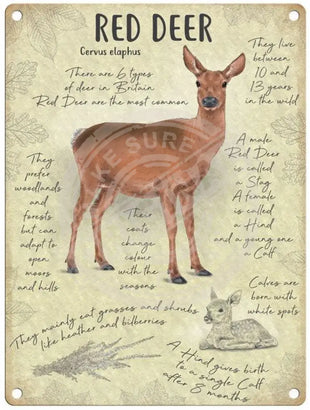 RED DEER
Cervus elaphus
There are 6 types
of deer in Britain.
Red Deer are the most common
They live
between
10 and
13 years
in the wild
They
prefer
woodlands
and
forests
but can
adapt to
open
moors
and hills
Their
coats
change
colour
with the
seasons
A male
Red Deer
is called
a Stag
A female
is called
a Hind
and a young one
a Calf
Calves are
born with
white spots
They mainly eat grasses and shrubs
like heather and bilberries
A Hind gives birth
to a single Calf
after 8 months
SURE